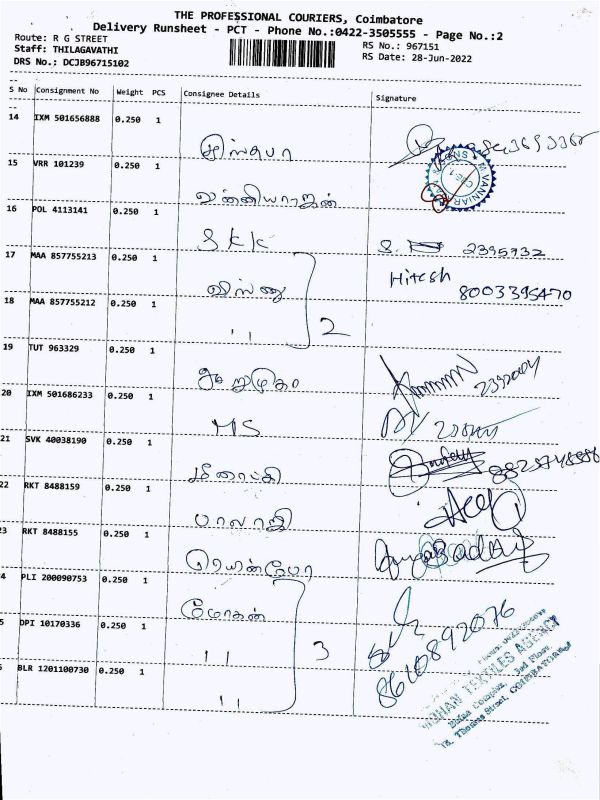 THE PROFESSIONAL COURIERS, Coimbatore
Delivery Runsheet - PCT - Phone No.:0422-3505555 - Page No.:2
Route: R G STREET
RS No.: 967151
Staff: THILAGAVATHI
RS Date: 28-Jun-2022
DRS No.: DCJB96715102
S No Consignment No Weight PCS Consignee Details Signature
14 IXM 501656888 0.250 1
15 VRR 101239 0.250 1
வன்னியராஜன்
M.VANNIAR
16 POL 4113141 0.250 1
SKK S. 2395932
17 MAA 857755213 0.250 1
விஸ்ணு Hitesh
8003395470
18 MAA 857755212 0.250 1
" 2
19 TUT 963329 0.250 1
20 IXM 501686233 0.250 1
MS
21 SVK 40038190 0.250 1
மீனாட்சி
22 RKT 8488159 0.250 1
பாலாஜி
3 RKT 8488155 0.250 1
ரெயின்போ
4 PLI 200090753 0.250 1
மோகன்
5 DPI 10170336 0.250 1
" 3 8610892076
BLR 1201100730 0.250 1
"
MOHAN TEXTILES AGENCY
3rd Floor,
Thomas Street, COIMBATORE